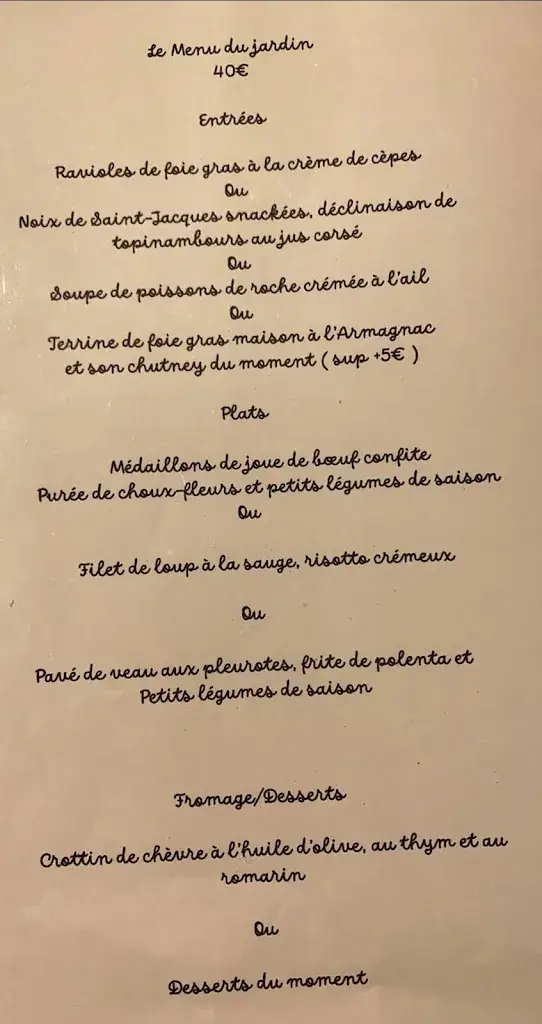 Le Menu du jardin
40€
Entrées
Ravioles de foie gras à la crème de cèpes
Ou
Noix de Saint-Jacques snackées, déclinaison de
topinambours au jus corsé
Ou
Soupe de poissons de roche crémée à l'ail
Ou
Terrine de foie gras maison à l'Armagnac
et son chutney du moment ( sup +5€ )
Plats
Médaillons de joue de bœuf confite
Purée de choux-fleurs et petits légumes de saison
Ou
Filet de loup à la sauge, risotto crémeux
Ou
Pavé de veau aux pleurotes, frite de polenta et
Petits légumes de saison
Fromage/Desserts
Crottin de chèvre à l'huile d'olive, au thym et au
romarin
Ou
Desserts du moment